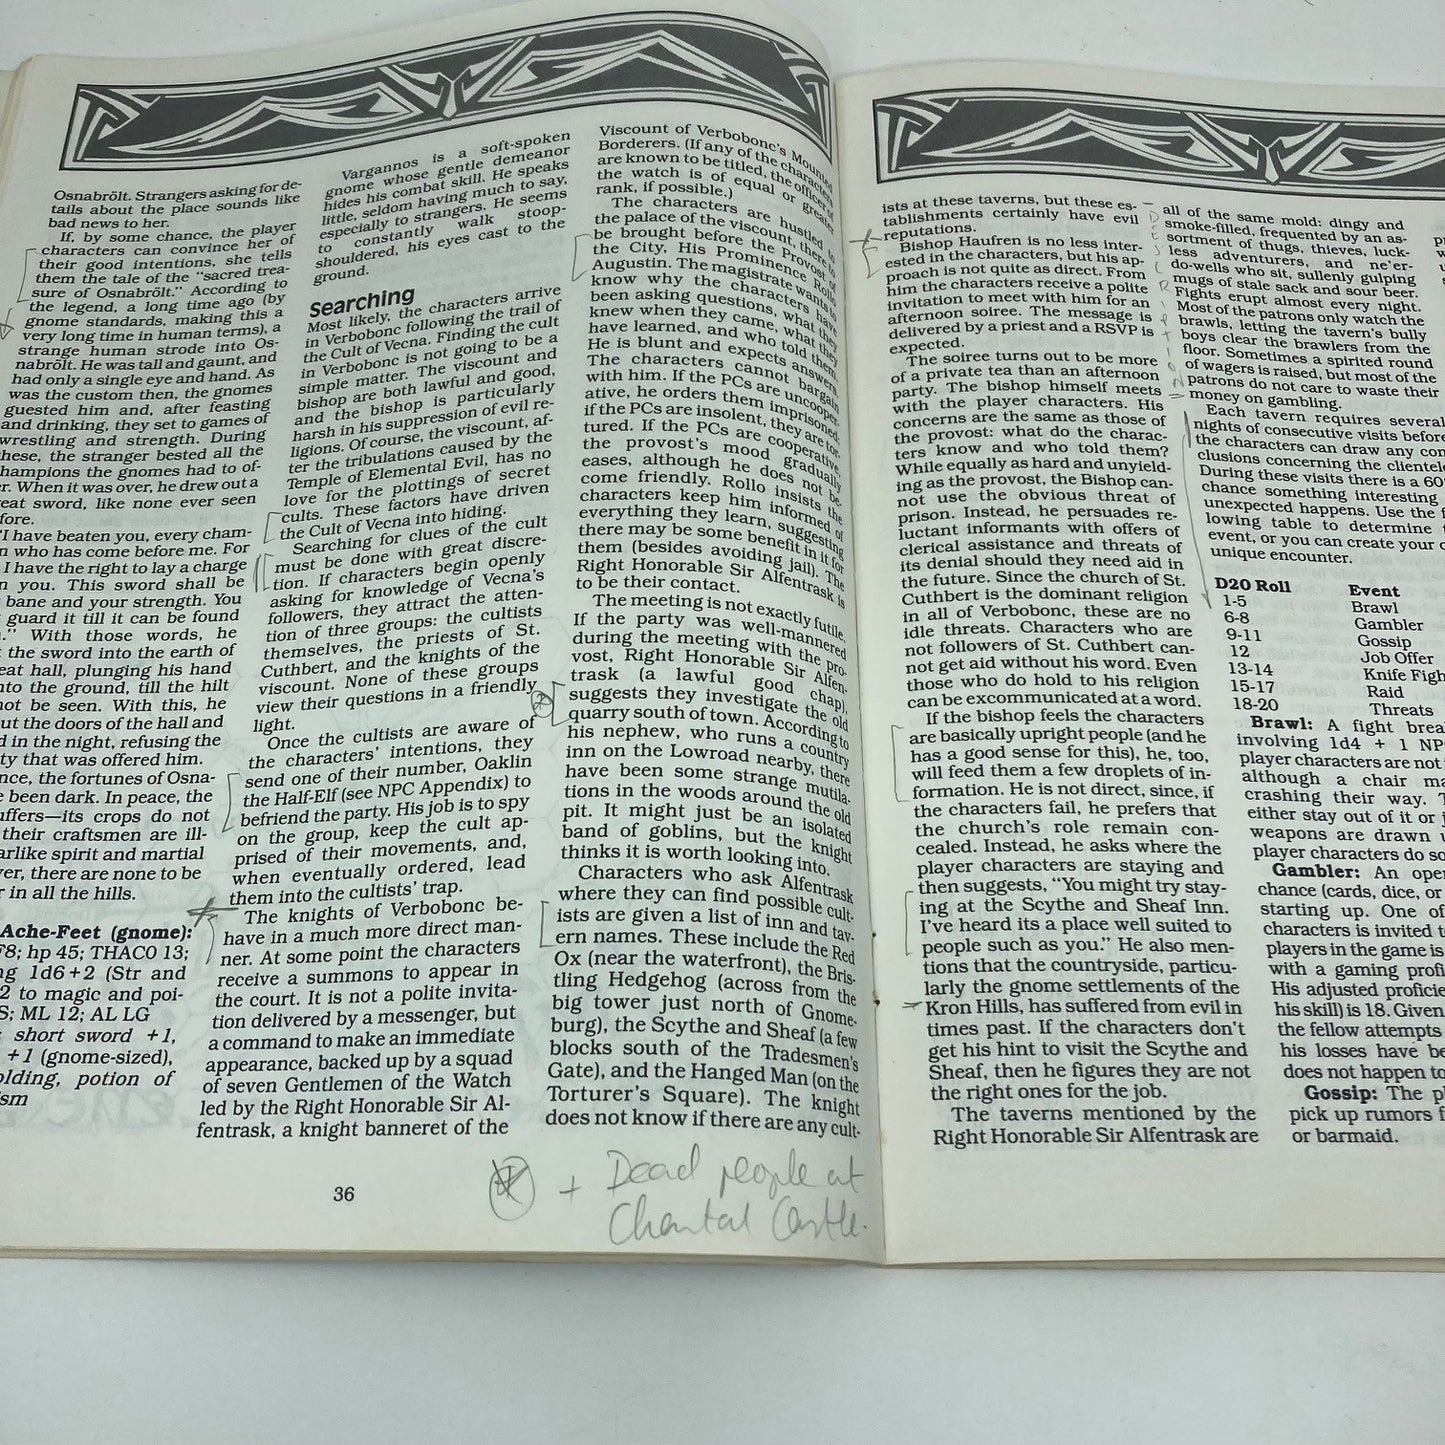 Osnabrölt. Strangers asking for de-
tails about the place sounds like
bad news to her.
If, by some chance, the player
characters can convince her of
their good intentions, she tells
them the tale of the "sacred trea-
sure of Osnabrölt." According to
the legend, a long time ago (by
gnome standards, making this a
very long time in human terms), a
strange human strode into Os-
nabrölt. He was tall and gaunt, and
had only a single eye and hand. As
was the custom then, the gnomes
guested him and, after feasting
and drinking, they set to games of
wrestling and strength. During
these, the stranger bested all the
hampions the gnomes had to of-
r. When it was over, he drew out a
eat sword, like none ever seen
fore.
"I have beaten you, every cham-
n who has come before me. For
I have the right to lay a charge
n you. This sword shall be
bane and your strength. You
guard it till it can be found
." With those words, he
t the sword into the earth of
eat hall, plunging his hand
nto the ground, till the hilt
not be seen. With this, he
ut the doors of the hall and
d in the night, refusing the
ty that was offered him.
nce, the fortunes of Osna-
e been dark. In peace, the
uffers—its crops do not
their craftsmen are ill-
arlike spirit and martial
ver, there are none to be
r in all the hills.
Ache-Feet (gnome):
F8; hp 45; THAC0 13;
ng 1d6+2 (Str and
2 to magic and poi-
S; ML 12; AL LG
: short sword +1,
+1 (gnome-sized),
olding, potion of
ism
Vargannos is a soft-spoken
gnome whose gentle demeanor
hides his combat skill. He speaks
little, seldom having much to say,
especially to strangers. He seems
to constantly walk stoop-
shouldered, his eyes cast to the
ground.
Searching
Most likely, the characters arrive
in Verbobonc following the trail of
the Cult of Vecna. Finding the cult
in Verbobonc is not going to be a
simple matter. The viscount and
bishop are both lawful and good,
and the bishop is particularly
harsh in his suppression of evil re-
ligions. Of course, the viscount, af-
ter the tribulations caused by the
Temple of Elemental Evil, has no
love for the plottings of secret
cults. These factors have driven
the Cult of Vecna into hiding.
Searching for clues of the cult
must be done with great discre-
tion. If characters begin openly
asking for knowledge of Vecna's
followers, they attract the atten-
tion of three groups: the cultists
themselves, the priests of St.
Cuthbert, and the knights of the
viscount. None of these groups
view their questions in a friendly
light.
Once the cultists are aware of
the characters' intentions, they
send one of their number, Oaklin
the Half-Elf (see NPC Appendix) to
befriend the party. His job is to spy
on the group, keep the cult ap-
prised of their movements, and,
when eventually ordered, lead
them into the cultists' trap.
The knights of Verbobonc be-
have in a much more direct man-
ner. At some point the characters
receive a summons to appear in
the court. It is not a polite invita-
tion delivered by a messenger, but
a command to make an immediate
appearance, backed up by a squad
of seven Gentlemen of the Watch
led by the Right Honorable Sir Al-
fentrask, a knight banneret of the
Viscount of Verbobonc's Mounted
Borderers. (If any of the characters
are known to be titled, the officer of
the watch is of equal or greater
rank, if possible.)
The characters are hustled to
the palace of the viscount, there to
be brought before the Provost of
the City, His Prominence Rollo
Augustin. The magistrate wants to
know why the characters have
been asking questions, what they
knew when they came, what they
have learned, and who told them.
He is blunt and expects answers.
The characters cannot bargain
with him. If the PCs are uncooper-
ative, he orders them imprisoned;
if the PCs are insolent, they are tor-
tured. If the PCs are cooperative,
the provost's mood gradually
eases, although he does not be-
come friendly. Rollo insists the
characters keep him informed of
everything they learn, suggesting
there may be some benefit in it for
them (besides avoiding jail). The
Right Honorable Sir Alfentrask is
to be their contact.
The meeting is not exactly futile.
If the party was well-mannered
during the meeting with the pro-
vost, Right Honorable Sir Alfen-
trask (a lawful good chap),
suggests they investigate the old
quarry south of town. According to
his nephew, who runs a country
inn on the Lowroad nearby, there
have been some strange mutila-
tions in the woods around the old
pit. It might just be an isolated
band of goblins, but the knight
thinks it is worth looking into.
Characters who ask Alfentrask
where they can find possible cult-
ists are given a list of inn and tav-
ern names. These include the Red
Ox (near the waterfront), the Bris-
tling Hedgehog (across from the
big tower just north of Gnome-
burg), the Scythe and Sheaf (a few
blocks south of the Tradesmen's
Gate), and the Hanged Man (on the
Torturer's Square). The knight
does not know if there are any cult-
36
+ Dead people at
Chantal Castle.
ists at these taverns, but these es-
tablishments certainly have evil
reputations.
Bishop Haufren is no less inter-
ested in the characters, but his ap-
proach is not quite as direct. From
him the characters receive a polite
invitation to meet with him for an
afternoon soiree. The message is
delivered by a priest and a RSVP is
expected.
The soiree turns out to be more
of a private tea than an afternoon
party. The bishop himself meets
with the player characters. His
concerns are the same as those of
the provost: what do the charac-
ters know and who told them?
While equally as hard and unyield-
ing as the provost, the Bishop can-
not use the obvious threat of
prison. Instead, he persuades re-
luctant informants with offers of
clerical assistance and threats of
its denial should they need aid in
the future. Since the church of St.
Cuthbert is the dominant religion
in all of Verbobonc, these are no
idle threats. Characters who are
not followers of St. Cuthbert can-
not get aid without his word. Even
those who do hold to his religion
can be excommunicated at a word.
If the bishop feels the characters
are basically upright people (and he
has a good sense for this), he, too,
will feed them a few droplets of in-
formation. He is not direct, since, if
the characters fail, he prefers that
the church's role remain con-
cealed. Instead, he asks where the
player characters are staying and
then suggests, "You might try stay-
ing at the Scythe and Sheaf Inn.
I've heard its a place well suited to
people such as you." He also men-
tions that the countryside, particu-
larly the gnome settlements of the
Kron Hills, has suffered from evil in
times past. If the characters don't
get his hint to visit the Scythe and
Sheaf, then he figures they are not
the right ones for the job.
The taverns mentioned by the
Right Honorable Sir Alfentrask are
all of the same mold: dingy and
smoke-filled, frequented by an as-
sortment of thugs, thieves, luck-
less adventurers, and ne'er-
do-wells who sit, sullenly gulping
mugs of stale sack and sour beer.
Fights erupt almost every night.
Most of the patrons only watch the
brawls, letting the tavern's bully
boys clear the brawlers from the
floor. Sometimes a spirited round
of wagers is raised, but most of the
patrons do not care to waste their
money on gambling.
Each tavern requires several
nights of consecutive visits before
the characters can draw any con
clusions concerning the cliente
During these visits there is a 60
chance something interesting
unexpected happens. Use the f
lowing table to determine t
event, or you can create your o
unique encounter.
D20 Roll Event
1-5 Brawl
6-8 Gambler
9-11 Gossip
12 Job Offer
13-14 Knife Figh
15-17 Raid
18-20 Threats
Brawl: A fight brea
involving 1d4 + 1 NP
player characters are not
although a chair ma
crashing their way. T
either stay out of it or j
weapons are drawn u
player characters do so
Gambler: An ope
chance (cards, dice, or
starting up. One of
characters is invited t
players in the game is
with a gaming profi
His adjusted proficie
his skill) is 18. Given
the fellow attempts
his losses have be
does not happen to
Gossip: The pl
pick up rumors f
or barmaid.